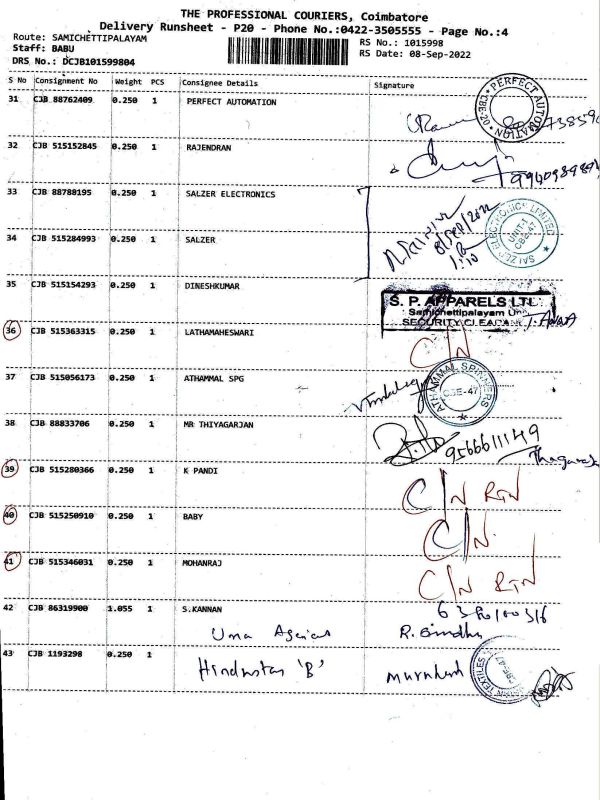 THE PROFESSIONAL COURIERS, Coimbatore
Delivery Runsheet - P20 - Phone No.:0422-3505555 - Page No.:4
Route: SAMICHETTIPALAYAM
Staff: BABU RS No.: 1015998
DRS No.: DCJB101599804 RS Date: 08-Sep-2022
S No Consignment No Weight PCS Consignee Details Signature
31 CJB 88762409 0.250 1 PERFECT AUTOMATION
PERFECT AUTOMATION CBE-20
32 CJB 515152845 0.250 1 RAJENDRAN
33 CJB 88788195 0.250 1 SALZER ELECTRONICS
SALZER ELECTRONICS LIMITED UNIT-1 CBE-47
34 CJB 515284993 0.250 1 SALZER
1:10
35 CJB 515154293 0.250 1 DINESHKUMAR
S. P. APPARELS LTD.
Samichettipalayam Unit
SECURITY CLEARANCE
36 CJB 515363315 0.250 1 LATHAMAHESWARI C/N
37 CJB 515056173 0.250 1 ATHAMMAL SPG
ATHAMMAL SPINNERS CBE-47
38 CJB 88833706 0.250 1 MR THIYAGARJAN 9566611149
39 CJB 515280366 0.250 1 K PANDI C/N RTN
40 CJB 515250910 0.250 1 BABY C/N
41 CJB 515346031 0.250 1 MOHANRAJ C/N RTN
42 CJB 86319900 1.055 1 S.KANNAN
Uma R. Sindhu
43 CJB 1193298 0.250 1 Hindustan 'B' Murukesh
TEXTILES CBE-47